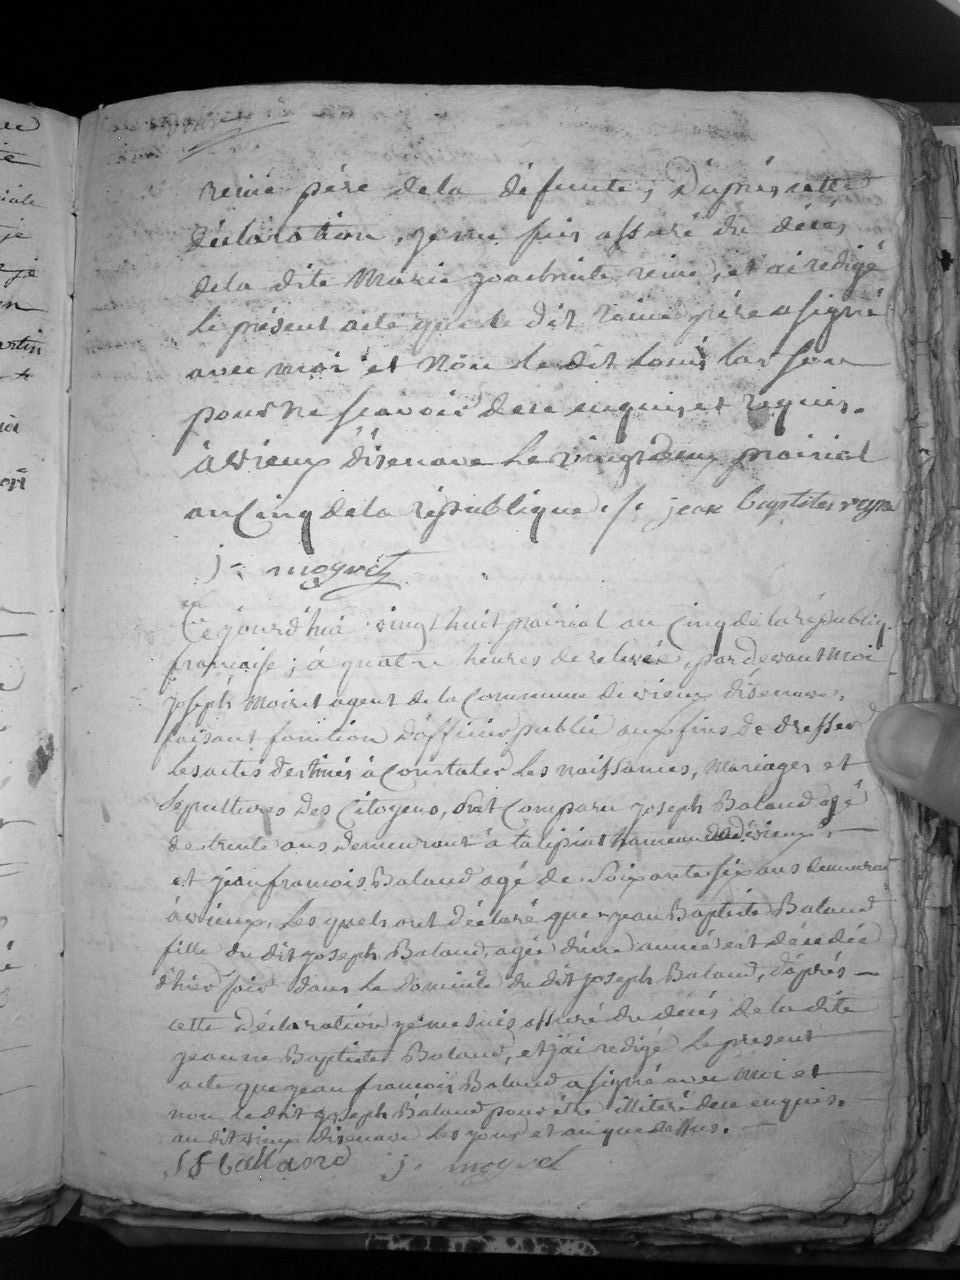 reine père de la défunte, D'après cette
déclaration, je me suis assuré du décès
de la dite Marie reine, et ai redigé
Le présent acte que le dit reine père a signé
avec moi et Non le dit Louis
pour ne scavoir dece enquis et requis.
à Vieux D'isenave Le vingt deux prairial
an Cinq de la république ./. jean baptiste reyne
j. moyret
Cejourd'hui vingt huit prairial an Cinq de la républiq.
francaise; à quatre heures de relevée, par devant Moi
joseph Moiret agent de la Commune de vieux d'isenave,
faisant fonction D'officier public aux fins de dresser
Les actes destinés à Constater Les naissances, Mariages et
Sepultures des Citoyens, Sont Comparu joseph Baland agé
de trente ans demeurant à talipiat hameau de vieux,
et jean francois Baland agé de Soixante six ans demeurant
à vieux, Les quels ont Déclaré que jean Baptiste Baland
fille du dit joseph Baland, agée d'une année est décédée
d'hier soir dans Le Domicile du dit joseph Baland, D'après
cette Déclaration je me suis assuré du décès de la dite
jeanne Baptiste Baland, et j'ai redigé Le present
acte que jean francois Baland a signé avec Moi et
non le dit joseph Baland pour être illiteré dece enquis.
au dit vieux disenave Les jour et an que dessus.
J F balland j. moyret